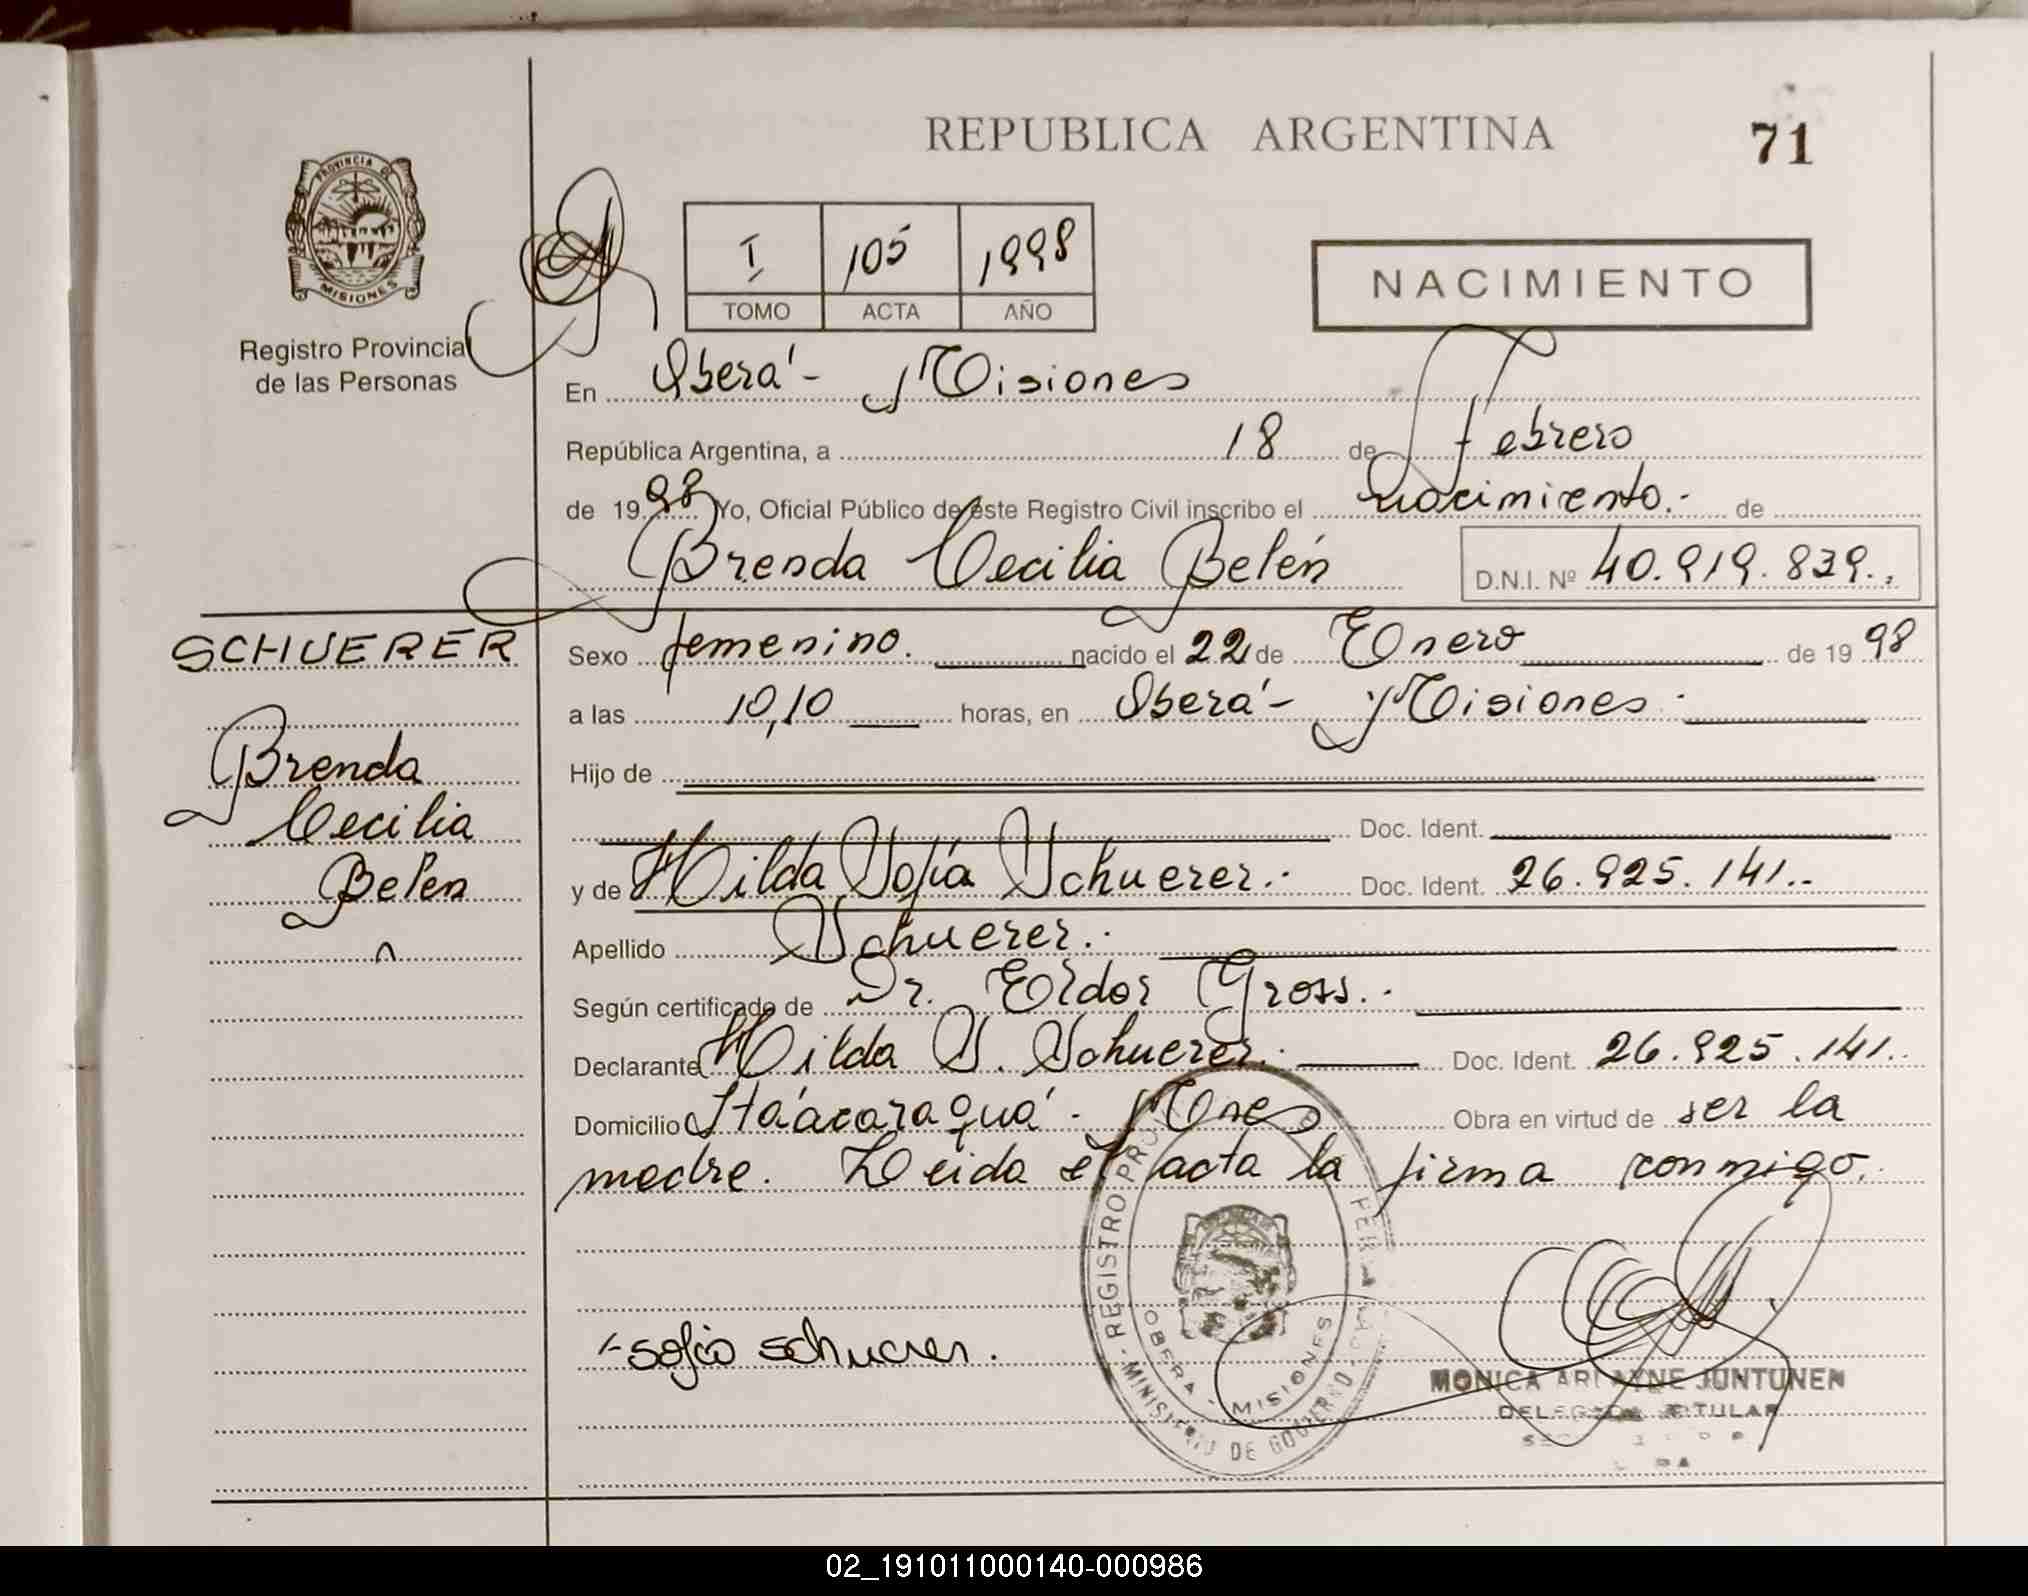 REPUBLICA ARGENTINA
71
PROVINCIA DE
MISIONES
Registro Provincial
de las Personas
I 105 1998
TOMO ACTA AÑO
NACIMIENTO
En Oberá - Misiones
República Argentina, a 18 de Febrero
de 1998 Yo, Oficial Público de éste Registro Civil inscribo el nacimiento.- de
Brenda Cecilia Belén D.N.I. Nº 40.919.839.-
SCHUERER
Brenda
Cecilia
Belen
Sexo femenino. nacido el 22 de Enero de 1998
a las 10,10 horas, en Oberá - Misiones.
Hijo de
Doc. Ident.
y de Hilda Sofía Schuerer.- Doc. Ident. 26.925.141.-
Apellido Schuerer.-
Según certificado de Dr. Erdor Gross.-
Declarante Hilda S. Schuerer.- Doc. Ident. 26.925.141.-
Domicilio Itáacaraguá - Mnes Obra en virtud de ser la
madre. Leida el acta la firma conmigo.
sofia schuerer.
REGISTRO
MINISTERIO DE GOBIERNO
OBERA - MISIONES
MONICA JUNTUNEN
TITULAR
02_191011000140-000986